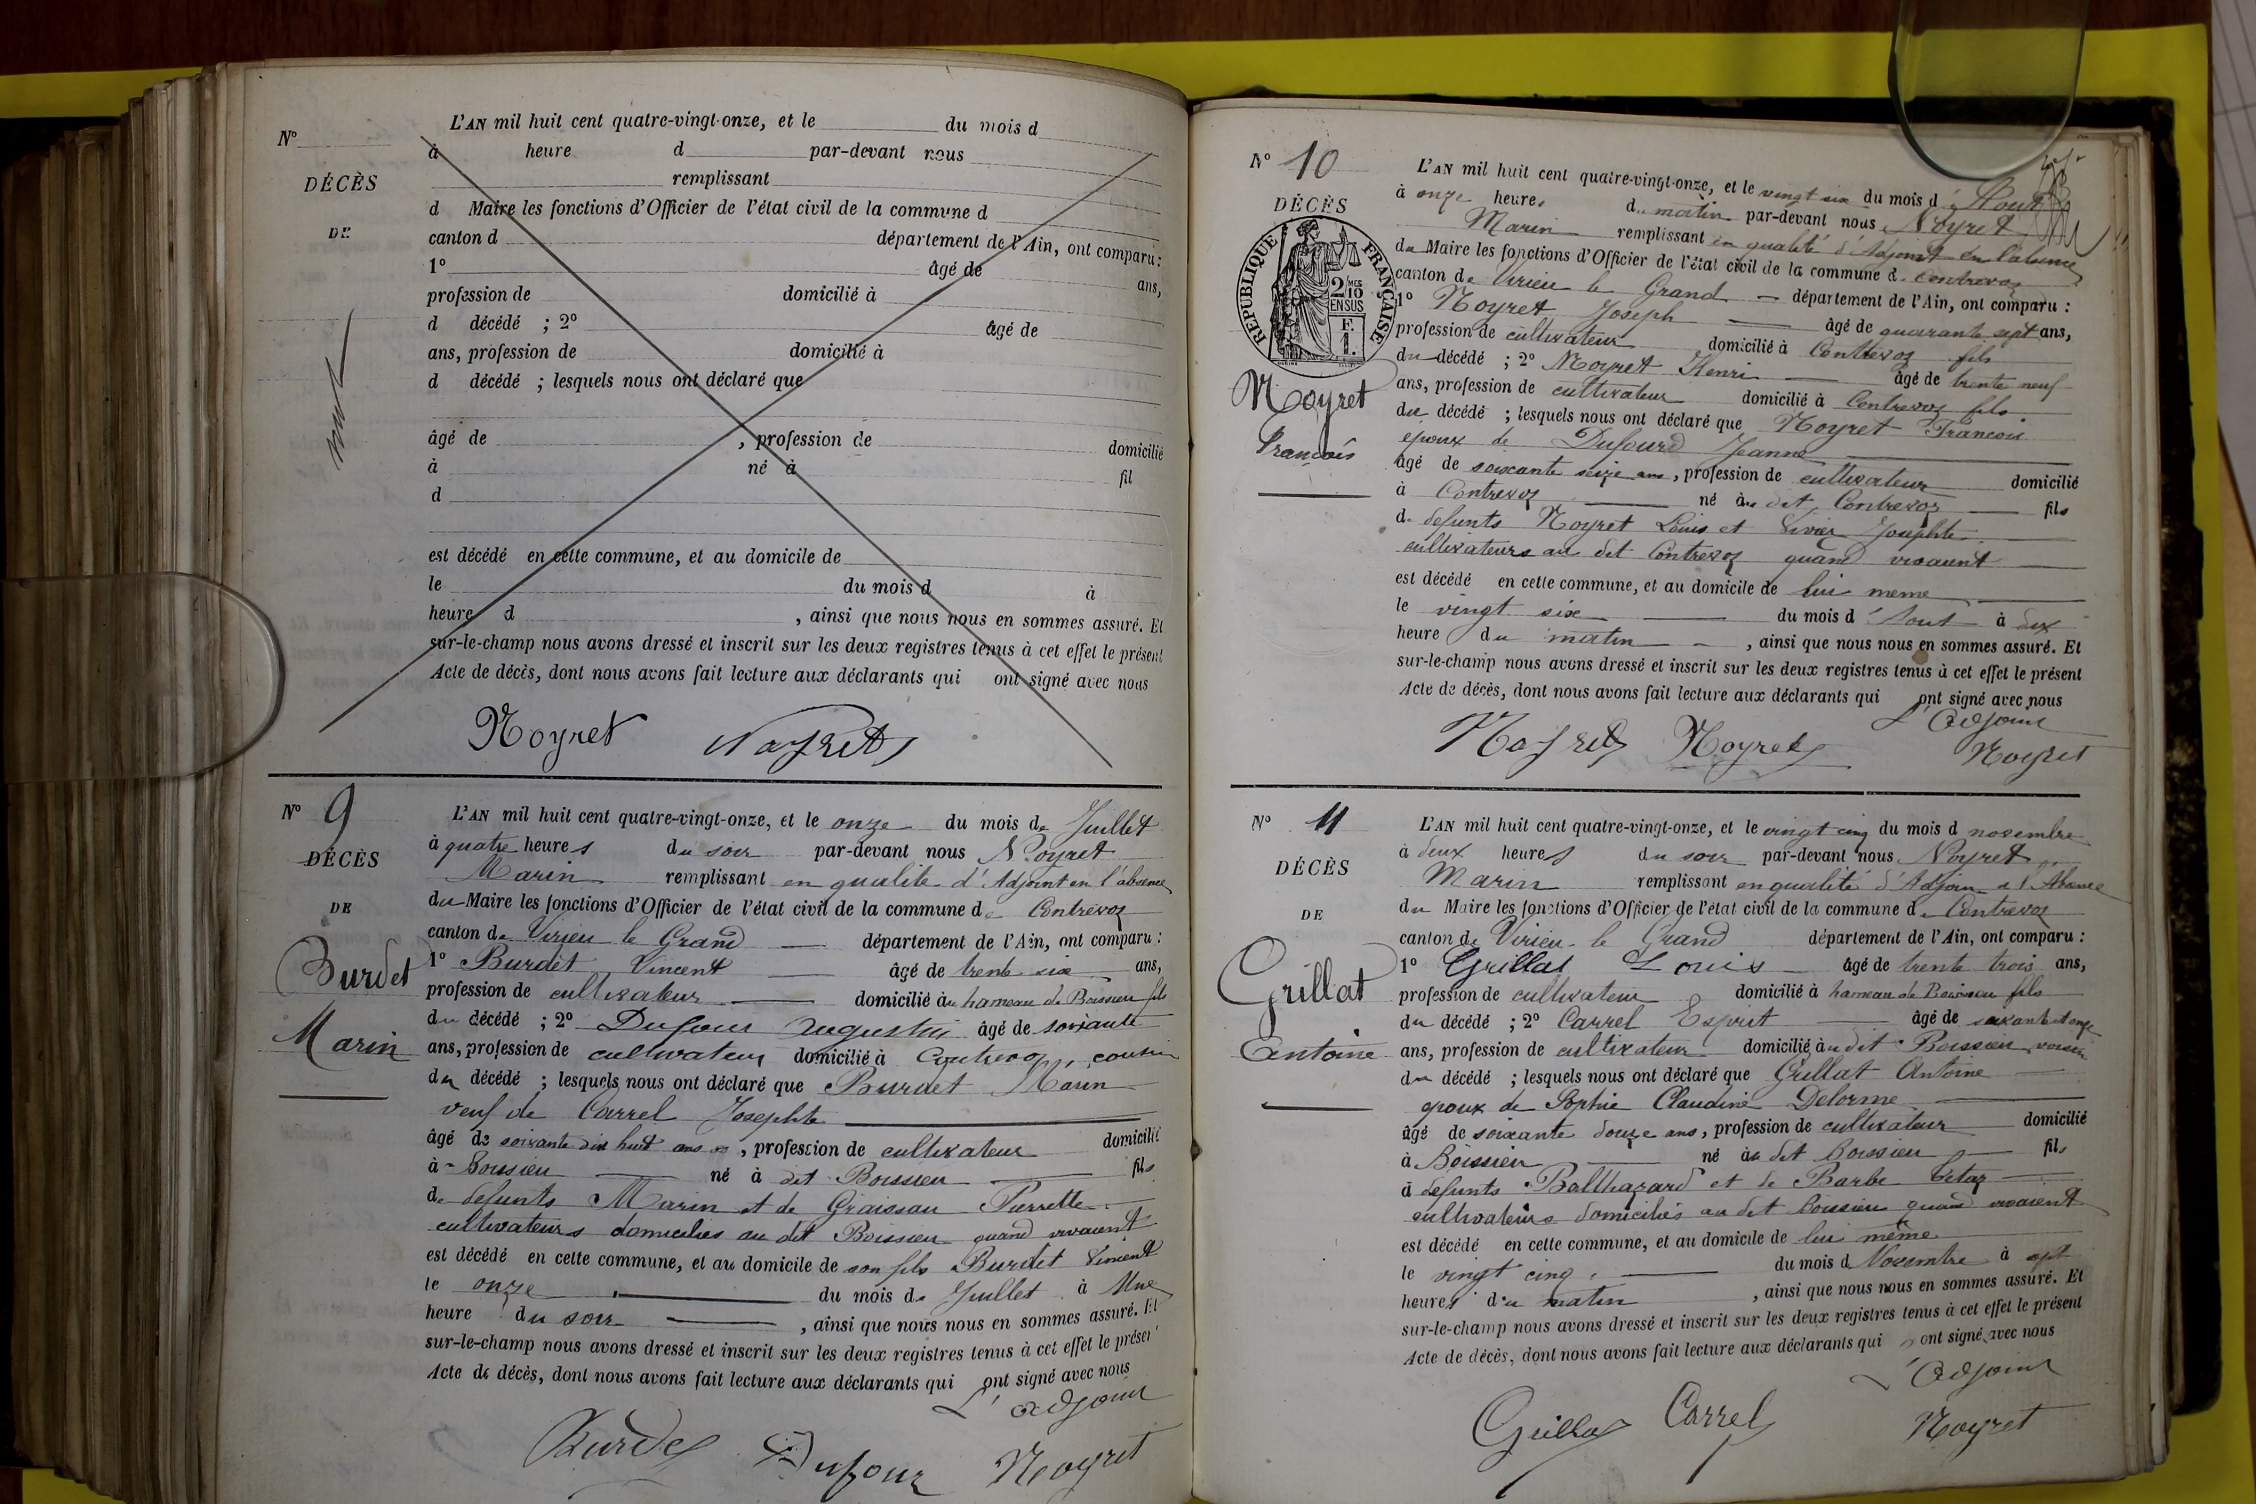 N°
DÉCÈS
DE
nul
L'AN mil huit cent quatre-vingt-onze, et le du mois d
à heure d par-devant nous
remplissant
d Maire les fonctions d'Officier de l'état civil de la commune d
canton d département de l'Ain, ont comparu :
1° âgé de ans,
profession de domicilié à
d décédé ; 2° âgé de
ans, profession de domicilié à
d décédé ; lesquels nous ont déclaré que
âgé de , profession de domicilié
à né à fil
d
est décédé en cette commune, et au domicile de
le du mois d à
heure d , ainsi que nous nous en sommes assuré. Et
sur-le-champ nous avons dressé et inscrit sur les deux registres tenus à cet effet le présent
Acte de décès, dont nous avons fait lecture aux déclarants qui ont signé avec nous
Noyret Noyret
N° 9
DÉCÈS
DE
Burdet
Marin
L'AN mil huit cent quatre-vingt-onze, et le onze du mois de Juillet
à quatre heures du soir par-devant nous Noyret
Marin remplissant en qualité d'Adjoint en l'absence
du Maire les fonctions d'Officier de l'état civil de la commune de Contrevoz
canton de Virieu le Grand département de l'Ain, ont comparu :
1° Burdet Vincent âgé de trente six ans,
profession de cultivateur domicilié au hameau de Boissieu fils
du décédé ; 2° Dufour Augustin âgé de soixante
ans, profession de cultivateur domicilié à Contrevoz, cousin
du décédé ; lesquels nous ont déclaré que Burdet Marin
veuf de Carrel Josephte
âgé de soixante dix huit ans , profession de cultivateur domicilié
à Boissieu né à dit Boissieu fils
de defunts Marin et de Graissau Pierrette
cultivateurs domiciliés au dit Boissieu quand vivaient
est décédé en cette commune, et au domicile de son fils Burdet Vincent
le onze du mois de Juillet à Une
heure du soir , ainsi que nous nous en sommes assuré. Et
sur-le-champ nous avons dressé et inscrit sur les deux registres tenus à cet effet le présen
Acte de décès, dont nous avons fait lecture aux déclarants qui ont signé avec nous
L'adjoint
Burdet Dufour Noyret
N° 10
DÉCÈS
RÉPUBLIQUE FRANÇAISE
2 MES
10
EN SUS
F.
1.
Noyret
François
L'AN mil huit cent quatre-vingt-onze, et le vingt six du mois d'Aout
à onze heures du matin par-devant nous Noyret
Marin remplissant en qualité d'Adjoint en l'absence
du Maire les fonctions d'Officier de l'état civil de la commune de Contrevoz
canton de Virieu le Grand département de l'Ain, ont comparu :
1° Noyret Joseph âgé de quarante sept ans,
profession de cultivateur domicilié à Contrevoz fils
du décédé ; 2° Noyret Henri âgé de trente neuf
ans, profession de cultivateur domicilié à Contrevoz fils
du décédé ; lesquels nous ont déclaré que Noyret François
époux de Dufourd Jeanne
âgé de soixante seize ans, profession de cultivateur domicilié
à Contrevoz né au dit Contrevoz fils
de defunts Noyret Louis et Vivier Josephte
cultivateurs au dit Contrevoz quand vivaient
est décédé en cette commune, et au domicile de lui meme
le vingt six du mois d'Aout à deux
heure du matin , ainsi que nous nous en sommes assuré. Et
sur-le-champ nous avons dressé et inscrit sur les deux registres tenus à cet effet le présent
Acte de décès, dont nous avons fait lecture aux déclarants qui ont signé avec nous
L'Adjoint
Noyret Noyret Noyret
N° 11
DÉCÈS
DE
Grillat
Antoine
L'AN mil huit cent quatre-vingt-onze, et le vingt cinq du mois d novembre
à deux heures du soir par-devant nous Noyret
Marin remplissant en qualité d'Adjoin a l'Absence
du Maire les fonctions d'Officier de l'état civil de la commune de Contrevoz
canton de Virieu-le Grand département de l'Ain, ont comparu :
1° Grillat Louis âgé de trente trois ans,
profession de cultivateur domicilié à hameau de Boissieu fils
du décédé ; 2° Carrel Esprit âgé de soixante et onze
ans, profession de cultivateur domicilié au dit Boissieu voisin
du décédé ; lesquels nous ont déclaré que Grillat Antoine
epoux de Sophie Claudine Delorme
âgé de soixante douze ans, profession de cultivateur domicilié
à Boissieu né au dit Boissieu fils
d defunts Balthazard et de Barbe Tétaz
cultivateurs domiciliés au dit Boissieu quand vivaient
est décédé en cette commune, et au domicile de lui même
le vingt cinq du mois d Novembre à sept
heures du matin , ainsi que nous nous en sommes assuré. Et
sur-le-champ nous avons dressé et inscrit sur les deux registres tenus à cet effet le présent
Acte de décès, dont nous avons fait lecture aux déclarants qui ont signé avec nous
L'Adjoint
Grillat Carrel Noyret